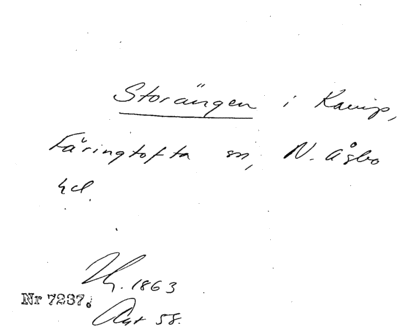 Storängen i Kamp,
Färingtofta sn, N. Åsbo
hd.
1863
Nr 7237.
58.